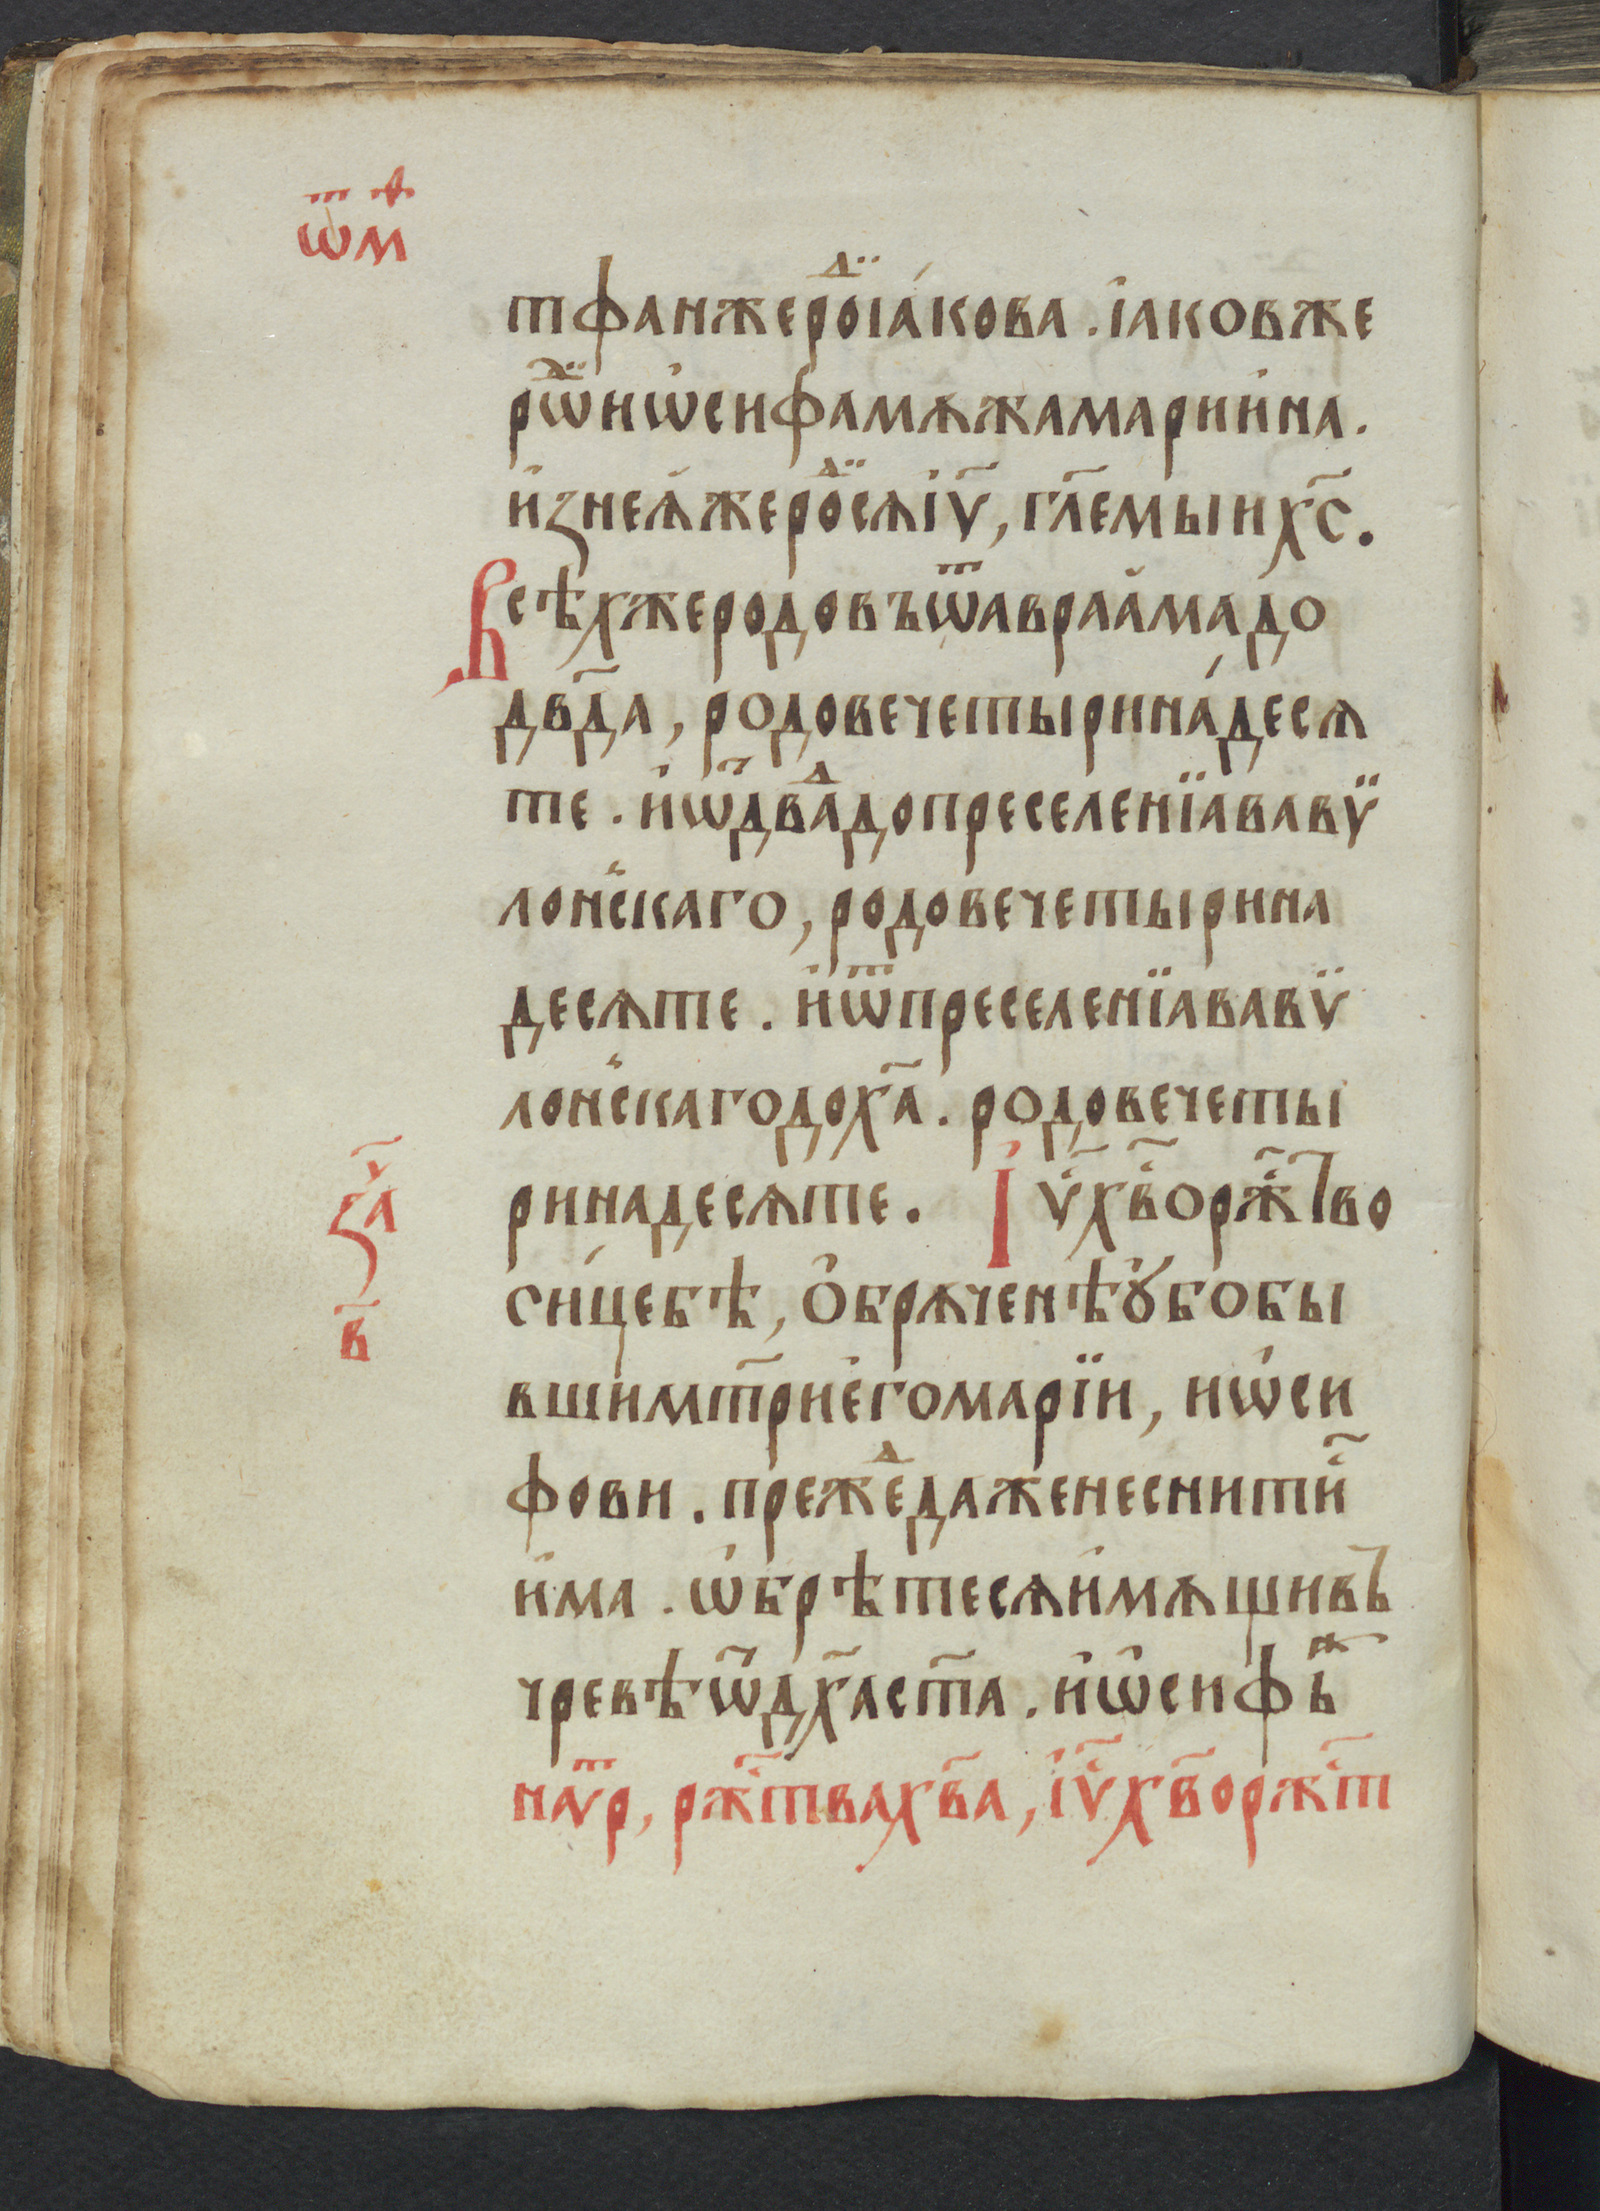 ѿ мⷴ
тфанжероⷣїа́кова . і҆аковже
рѡⷣи҆ѡ҆сифамѫжамариина .
и҆знеѧ҆жероⷣсѧі҆у҃, гл҃емыих҃с .
Всѣхжеродовъѿавраа҆мадо
дв҃да, родовечетырина́десѧ
те . и҆ѿдваⷣдопреселенїававѷ
лонскаго, родовечетырина
десѧте . и҆ѿпреселенїававѷ
лонскагодох҃а . родовечеты
ринадесѧте . І҆у҃х҃ворж҃тво
за҃ч
в҃
сицебѣ, о҆брѫченѣꙋ҆бобы
вшимт҃рие҆гомарїи, иѡ҆си
фови . прежеⷣдаженеснити҃
и҆ма . ѡ҆брѣтесѧи҆мѫщивъ
чревѣѿдх҃аст҃а . и҆ѡ҆сифъⷤ
наѵⷬ҇р, рж҃твахв҃а, і҆у҃хв҃орж҃т